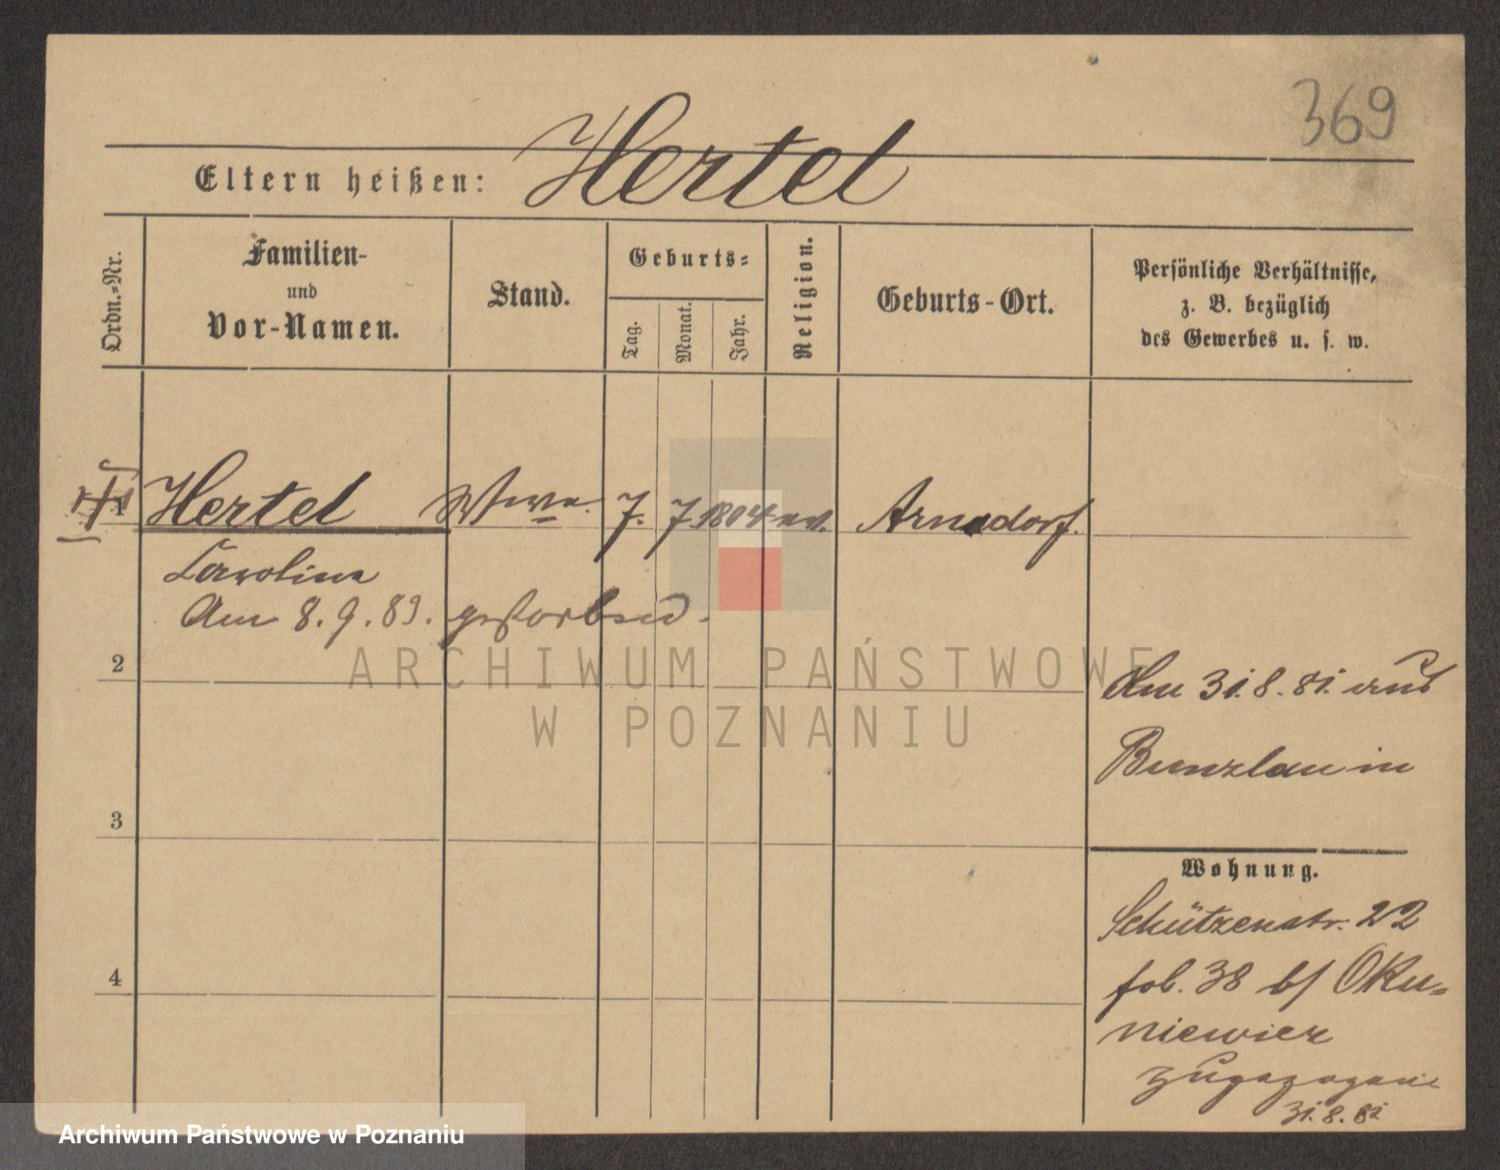 369
Eltern heißen: Hertel
Ordn.=Nr.
Familien-
und
Vor-Namen.
Stand.
Geburts=
Tag.
Monat.
Jahr.
Religion.
Geburts-Ort.
Persönliche Verhältnisse,
z. B. bezüglich
des Gewerbes u. s. w.
Hertel Wwe. 7. 7. 1804 ev. Arnsdorf.
Caroline
Am 8. 9. 89. gestorben.
2
Am 31. 8. 81. aus
Bunzlau in
3
Wohnung.
Schützenstr. 22
fol. 38 b/ Oku-
niewicz
zugezogen
31. 8. 81
4
ARCHIWUM PAŃSTWOWE
W POZNANIU
Archiwum Państwowe w Poznaniu